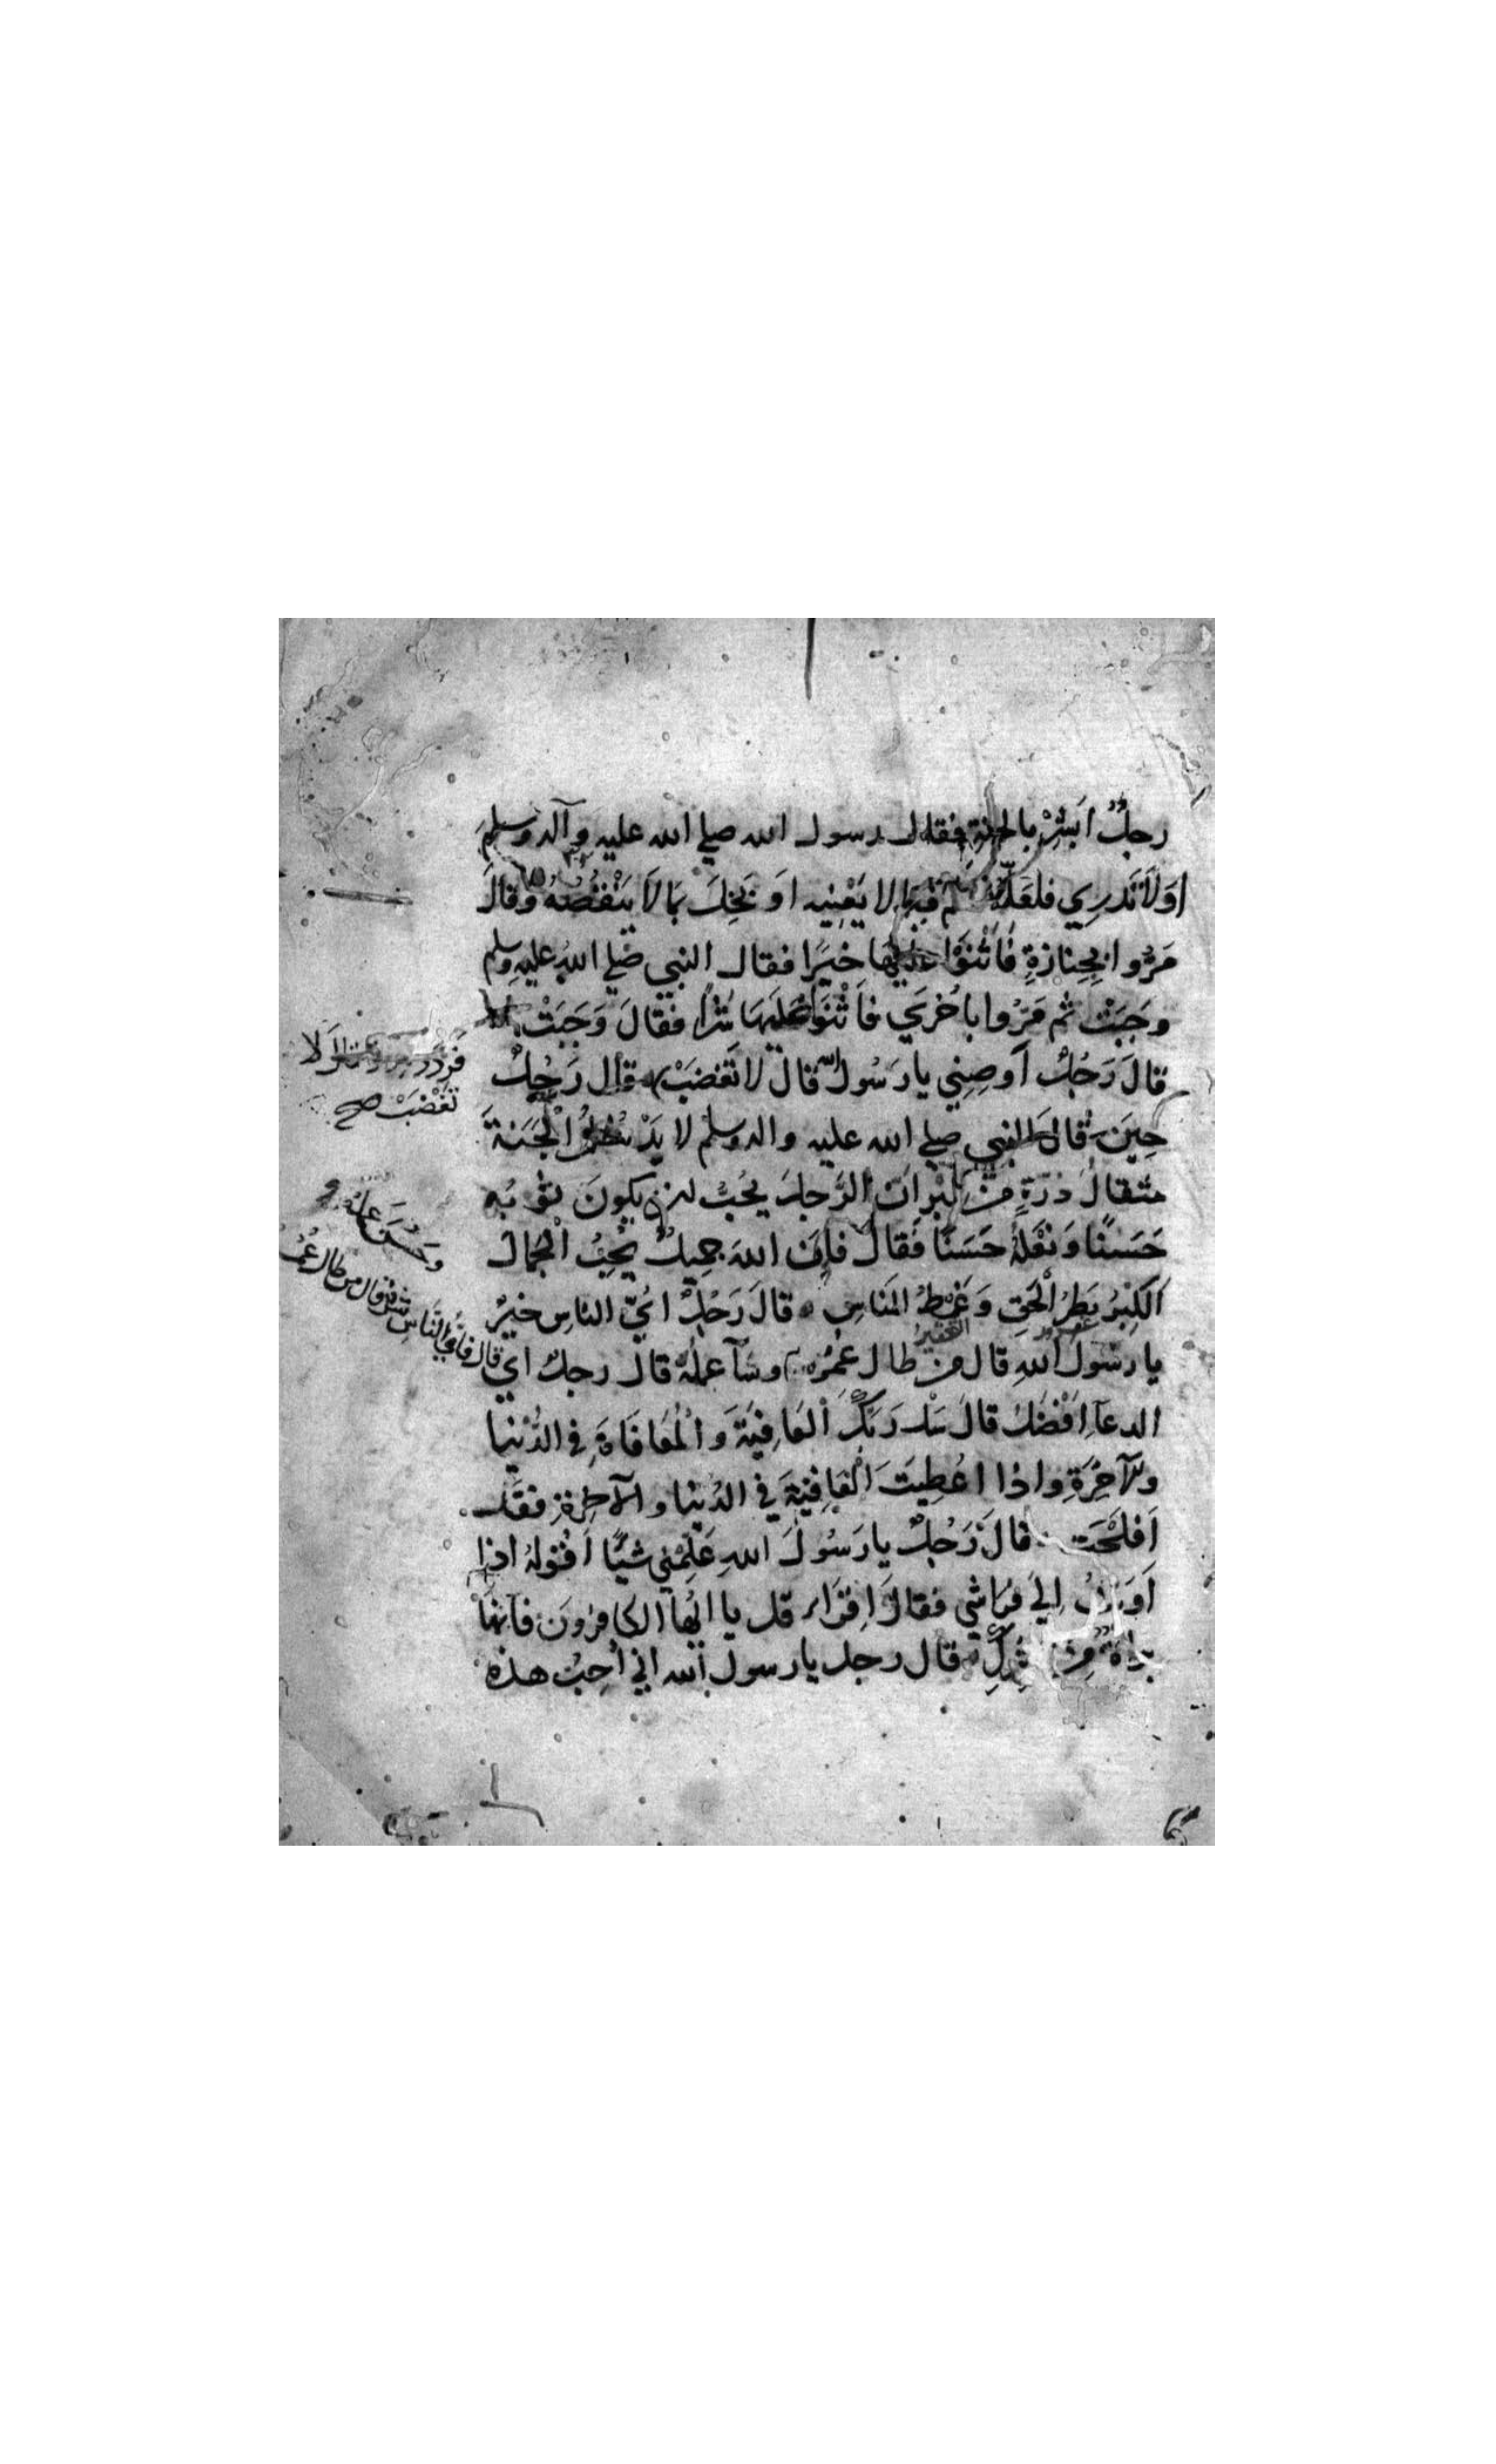 رجلٌ اَبشِرْ بالجنةِ فقال رسول الله صلي الله عليه وآله وسلم
اَوَلَا تَدرِي فلعَلَّهُ تكلم فيما لا يَعْنِيهِ اَو بَخِلَ بمَا لَا يَنْقُصُهُ وقالَ
مَرُّوا بجِنازةٍ فَاَثْنَوْا عليها خيرًا فقال النبي صلي اللهُ عليهِ وسلم
وجَبَتْ ثم مَرُّوا باُخْرَي فاَثْنَوْا عَلَيهَا شَرًّا فقالَ وَجَبَتْ
قالَ رَجُلٌ اَوصِنِي يا رَسُولَ الله قالَ لا تَغْضَبْ قال رَجُلٌ
حِينَ قالَ النبي صلي الله عليه واله وسلم لا يَدْخُلُ الْجَنةَ
مثقالُ ذرّةٍ مِنْ كِبْرٍ اِنّ الرَّجلَ يُحبُّ ان يكونَ ثوبُه
حَسَنًا وَنَعْلُهُ حَسَنًا فَقالَ فاِنّ اللهَ جميلٌ يُحِبُّ الْجمالَ
اَلكِبْرُ بَطَرُ الْحَقِ وَغَمْطُ النَاسِ قالَ رَجُلٌ ايُّ الناسِ خيرٌ
يا رسُولَ اللهِ قال مَن طالَ عُمُرُه وسَآءَ عملُهُ قالَ رجلٌ اي
الدعآءِ اَفْضَلُ قالَ سَلْ رَبَّكَ اَلعَافِيَةَ وَالْمُعَافَاةَ فِي الدُّنْيا
والآخِرَةِ واذا اُعْطِيتَ الْعَافِيَةَ فِي الدُنيا والآخِرةِ فقد
اَفلَحْتَ قالَ رَجُلٌ يا رَسُولَ اللهِ عَلِّمْنِي شيئًا اَقُولهُ اذا
اَوَيتُ اِلي فِراشي فقالَ اِقرَاء قل يا ايُّها الكافرونَ فانها
براةٌ مِن الشِركِ قال رجل يا رسول الله اني اُحِبُ هذه
فردَّد مرارًا قال لا
تَغْضَبْ صح
وحَسُنَ عملُهُ
قال فايُّ النَاسِ شرٌّ قال من طال عُمُرُه
التحقير